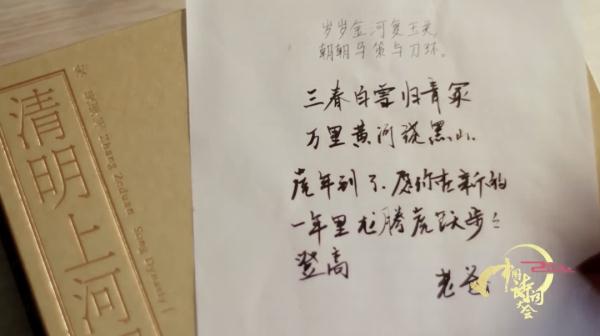 宋
张择端 Zhang Zeduan Song Dynasty
清明上河
岁岁金河复玉关
朝朝马策与刀环。
三春白雪归青冢
万里黄河绕黑山
虎年到了,愿你在新的
一年里龙腾虎跃步步
登高
老爸
中国诗词
大会